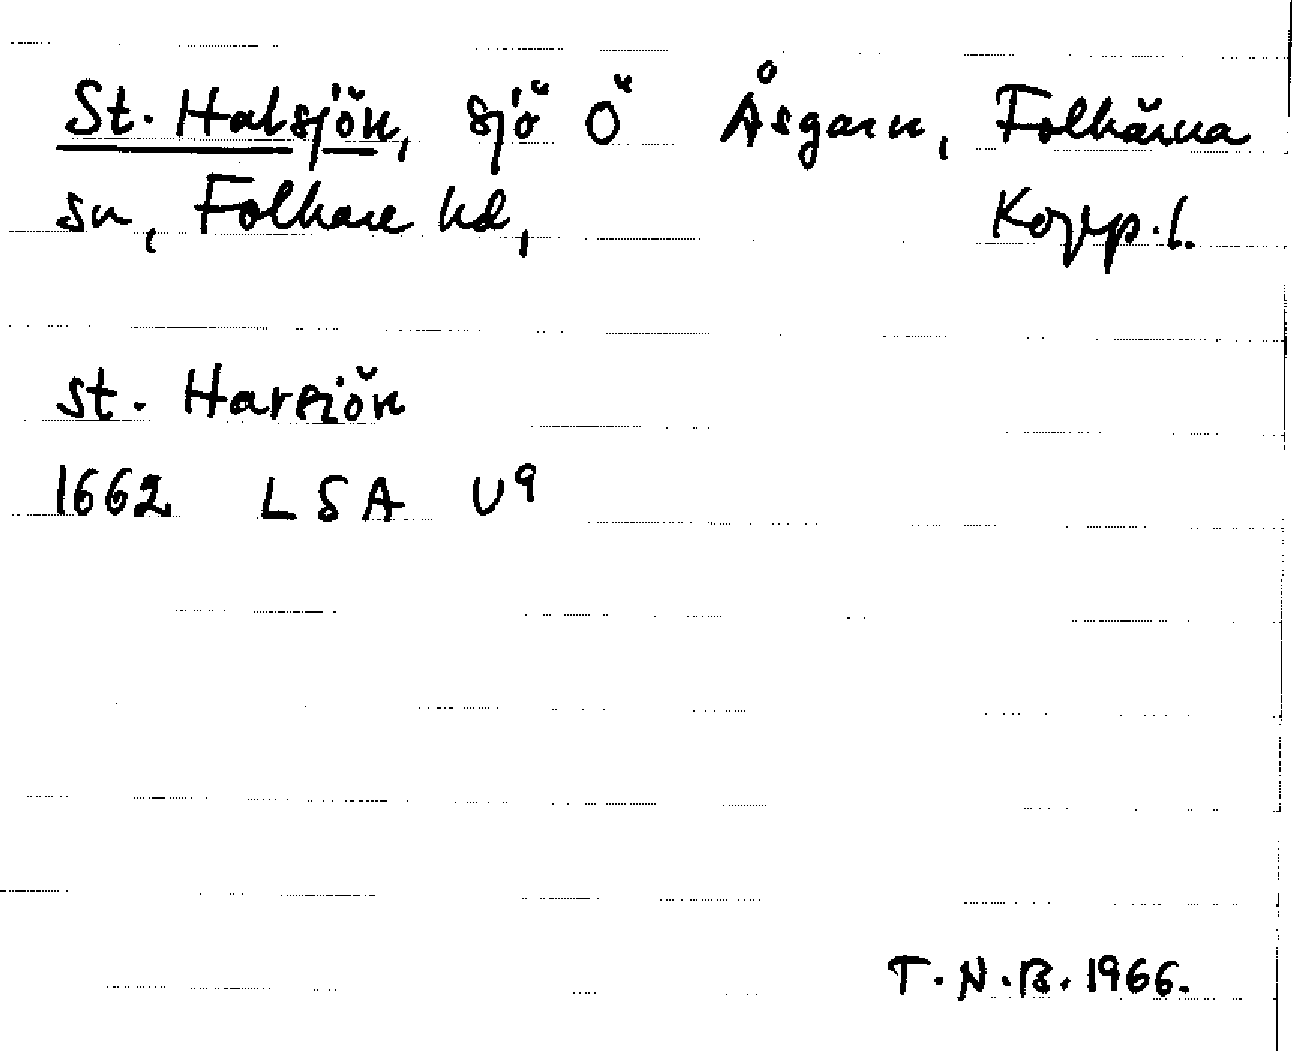 St. Halsjön, sjö Ö Åsgarn, Folkärna
sn, Folkare hd, Kopp.l.
st. Harsiön
1662 LSA U9
T.N.B. 1966.